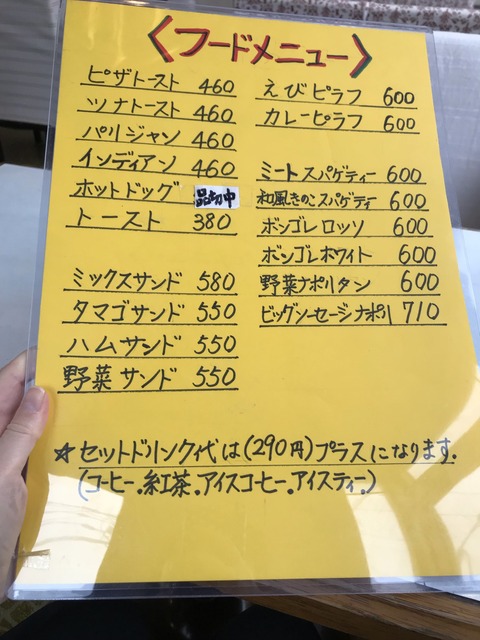 〈フードメニュー〉
ピザトースト 460
ツナトースト 460
パリジャン 460
インディアン 460
ホットドッグ 品切中
トースト 380
ミックスサンド 580
タマゴサンド 550
ハムサンド 550
野菜サンド 550
えびピラフ 600
カレーピラフ 600
ミートスパゲティー 600
和風きのこスパゲティ 600
ボンゴレロッソ 600
ボンゴレホワイト 600
野菜ナポリタン 600
ビッグソーセージナポリ 710
☆セットドリンク代は(290円)プラスになります.
(コーヒー.紅茶.アイスコーヒー.アイスティー.)